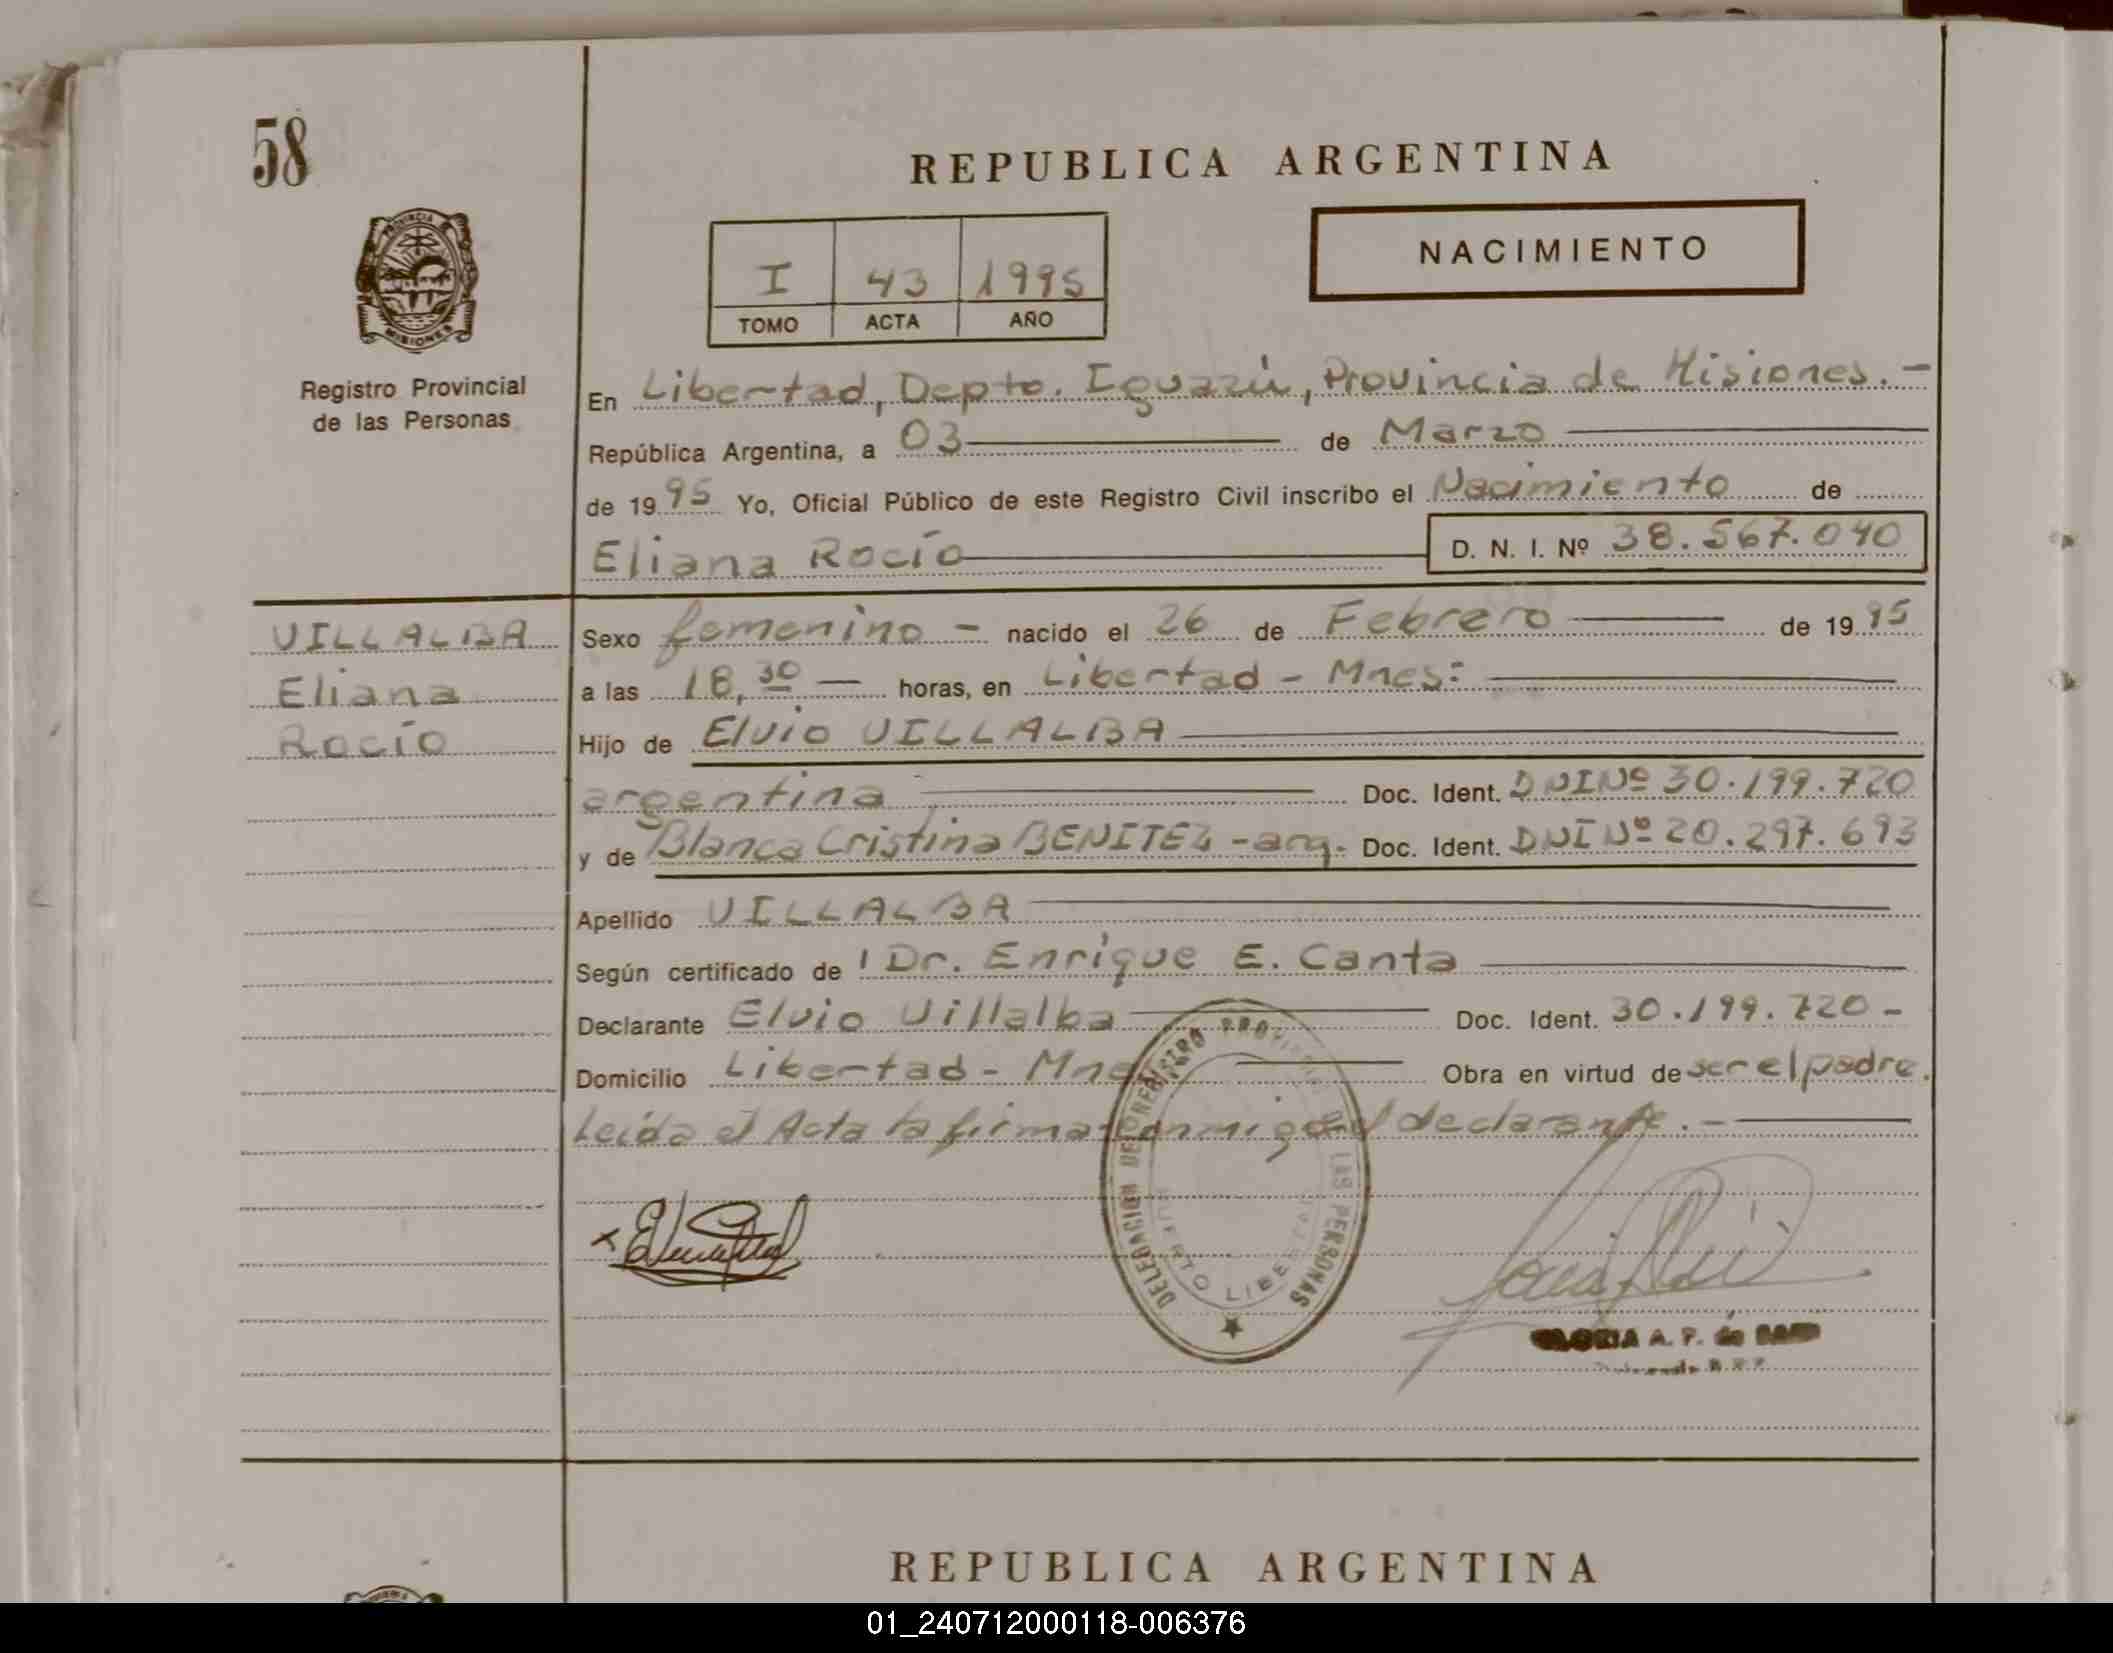 58
REPUBLICA ARGENTINA
PROVINCIA
MISIONES
Registro Provincial
de las Personas
I 43 1995
TOMO ACTA AÑO
NACIMIENTO
En Libertad, Depto. Iguazú, Provincia de Misiones.-
República Argentina, a 03 de Marzo
de 1995 Yo, Oficial Público de este Registro Civil inscribo el Nacimiento de
Eliana Rocío D. N. I. Nº 38.567.040
VILLALBA
Eliana
Rocío
Sexo femenino - nacido el 26 de Febrero de 1995
a las 18,30 horas, en Libertad - Mnes:
Hijo de Elvio VILLALBA
argentina Doc. Ident. DNI Nº 30.199.720
y de Blanca Cristina BENITEZ - arg. Doc. Ident. DNI Nº 20.297.693
Apellido VILLALBA
Según certificado de Dr. Enrique E. Canta
Declarante Elvio Villalba Doc. Ident. 30.199.720-
Domicilio Libertad - Mnes Obra en virtud de ser el padre.
Leída el Acta la firma conmigo el declarante.-
DELEGACION DEL REGISTRO PROVINCIAL DE LAS PERSONAS
PUERTO LIBERTAD
GLORIA A. P. de
REPUBLICA ARGENTINA
01_240712000118-006376